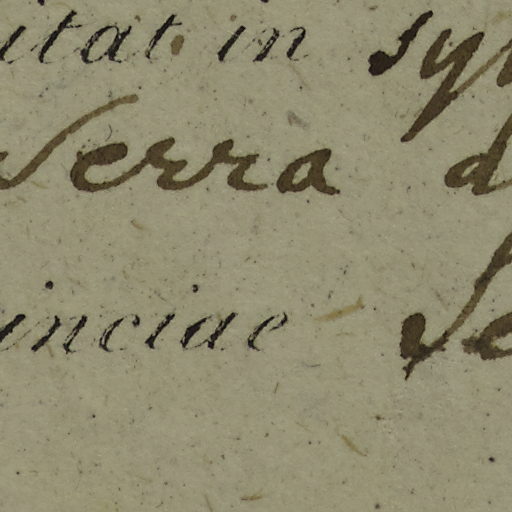 itat in sy
Serra d
inciae Se